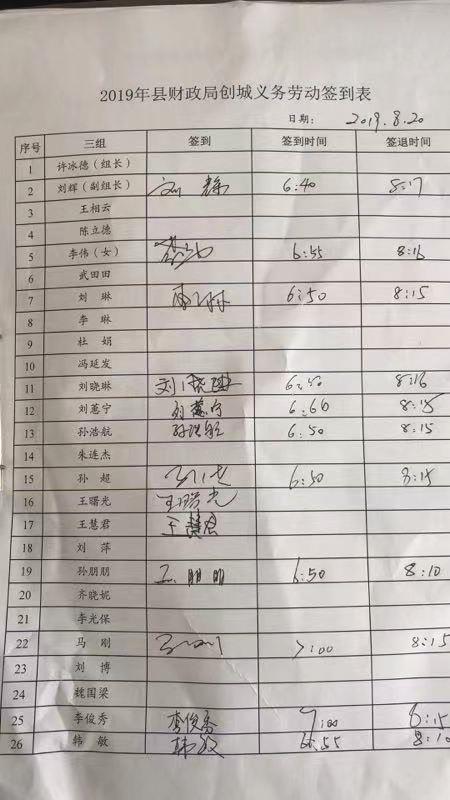 2019年县财政局创城义务劳动签到表
日期： 2019.8.20
序号 三组 签到 签到时间 签退时间
1 许冰德（组长）
2 刘辉（副组长） 刘辉 6:40 8:17
3 王相云
4 陈立德
5 李伟（女） 6:55 8:16
6 武田田
7 刘琳 6:50 8:15
8 李琳
9 杜娟
10 冯延发
11 刘晓琳 刘晓琳 6:50 8:16
12 刘蕙宁 刘蕙宁 8:15
13 孙浩航 孙浩航 6:50 8:15
14 朱连杰
15 孙超 6:50 8:15
16 王曙光 王曙光
17 王慧君 王慧君
18 刘萍
19 孙朋朋 6:50 8:10
20 齐晓妮
21 李光保
22 马刚 7:00 8:15
23 刘博
24 魏国梁
25 李俊秀 李俊秀 7:00 8:15
26 韩敏 韩敏 6:55 8:10